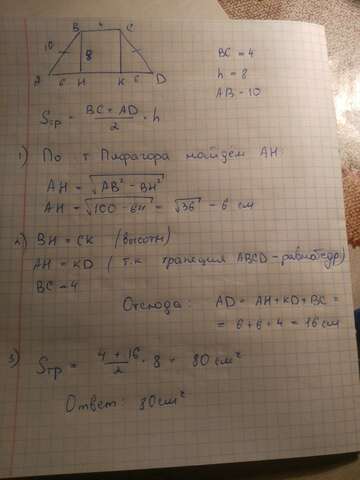 B 4 C
10 8
A 6 H K 6 D
BC = 4
h = 8
AB = 10
Sтр = BC + AD / 2 · h
1) По т Пифагора найдем AH:
AH = √AB² - BH²
AH = √100 - 64 = √36 = 6 см
2) BH = CK (высоты)
AH = KD (т.к трапеция ABCD - равнобедр)
BC = 4
Отсюда: AD = AH + KD + BC =
= 6 + 6 + 4 = 16 см
3) Sтр = 4 + 16 / 2 · 8 = 80 см²
Ответ: 80 см²